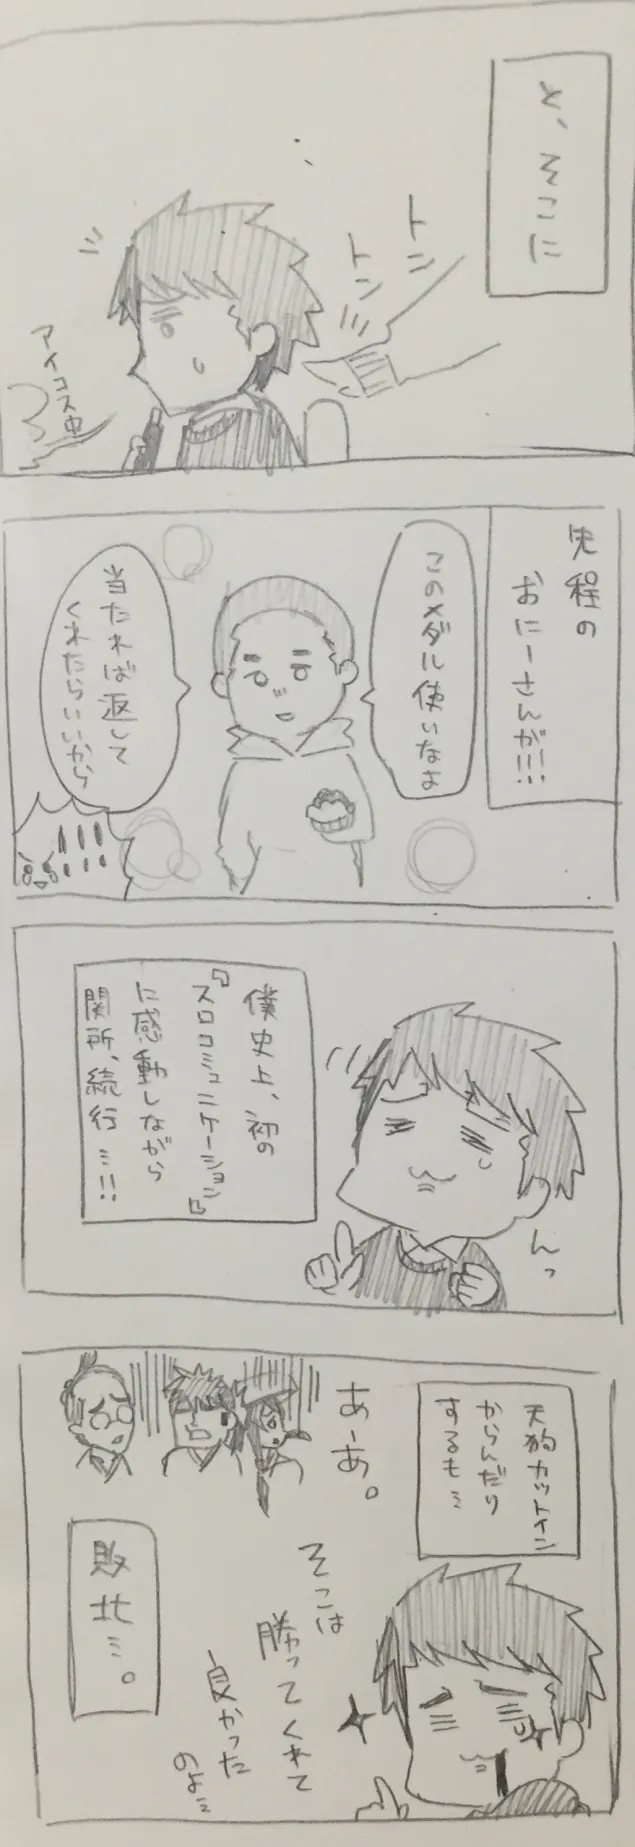 と、そこに
トン
トン
アイコス中
先程の
おにーさんが!!!
このメダル使いなよ
当たれば返して
くれたらいいから
!!!
僕史上、初の
『スロコミュニケーション』
に感動しながら
関所、続行…!!
んっ
天狗カットイン
からんだり
するも…
あーあ。
そこは
勝ってくれて
良かった
のよ…
敗北…。